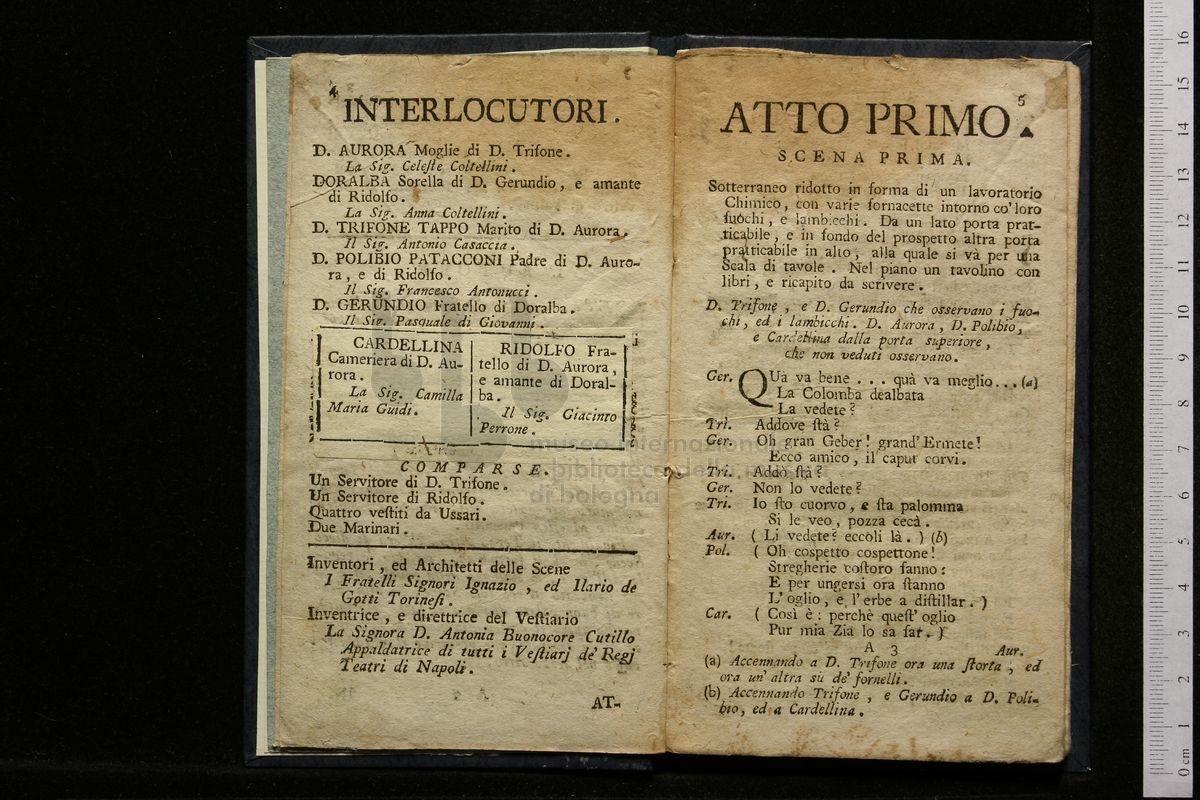 4
INTERLOCUTORI.
D. AURORA Moglie di D. Trifone.
La Sig. Celeste Coltellini.
DORALBA Sorella di D. Gerundio, e amante
di Ridolfo.
La Sig. Anna Coltellini.
D. TRIFONE TAPPO Marito di D. Aurora.
Il Sig. Antonio Casaccia.
D. POLIBIO PATACCONI Padre di D. Auro-
ra, e di Ridolfo.
Il Sig. Francesco Antonucci.
D. GERUNDIO Fratello di Doralba.
Il Sig. Pasquale di Giovanni.
CARDELLINA
Cameriera di D. Au-
rora.
La Sig. Camilla
Maria Guidi.
RIDOLFO Fra-
tello di D. Aurora,
e amante di Doral-
ba.
Il Sig. Giacinto
Perrone.
COMPARSE.
Un Servitore di D. Trifone.
Un Servitore di Ridolfo.
Quattro vestiti da Ussari.
Due Marinari.
Inventori, ed Architetti delle Scene
I Fratelli Signori Ignazio, ed Ilario de
Gotti Torinesi.
Inventrice, e direttrice del Vestiario
La Signora D. Antonia Buonocore Cutillo
Appaldatrice di tutti i Vestiarj de' Regj
Teatri di Napoli.
AT-
5
ATTO PRIMO.
SCENA PRIMA.
Sotterraneo ridotto in forma di un lavoratorio
Chimico, con varie fornacette intorno co' loro
fuochi, e lambicchi. Da un lato porta prat-
ticabile, e in fondo del prospetto altra porta
pratticabile in alto, alla quale si và per una
Scala di tavole. Nel piano un tavolino con
libri, e ricapito da scrivere.
D. Trifone, e D. Gerundio che osservano i fuo-
chi, ed i lambicchi. D. Aurora, D. Polibio,
e Cardellina dalla porta superiore,
che non veduti osservano.
Ger. QUa va bene ... quà va meglio... (a)
La Colomba dealbata
La vedete?
Tri. Addove stà?
Ger. Oh gran Geber! grand' Ermete!
Ecco amico, il caput corvi.
Tri. Addò stà?
Ger. Non lo vedete?
Tri. Io sto cuorvo, e sta palomma
Si le veo, pozza cecà.
Aur. ( Li vedete? eccoli là. ) (b)
Pol. ( Oh cospetto cospettone!
Stregherie costoro fanno:
E per ungersi ora stanno
L' oglio, e l' erbe a distillar. )
Car. ( Così è: perchè quest' oglio
Pur mia Zia lo sa far. )
A 3 Aur.
(a) Accennando a D. Trifone ora una storta, ed
ora un' altra sù de' fornelli.
(b) Accennando Trifone, e Gerundio a D. Poli-
bio, ed a Cardellina.
museo internazionale
biblioteca della musica
di bologna
0 cm 1 2 3 4 5 6 7 8 9 10 11 12 13 14 15 16